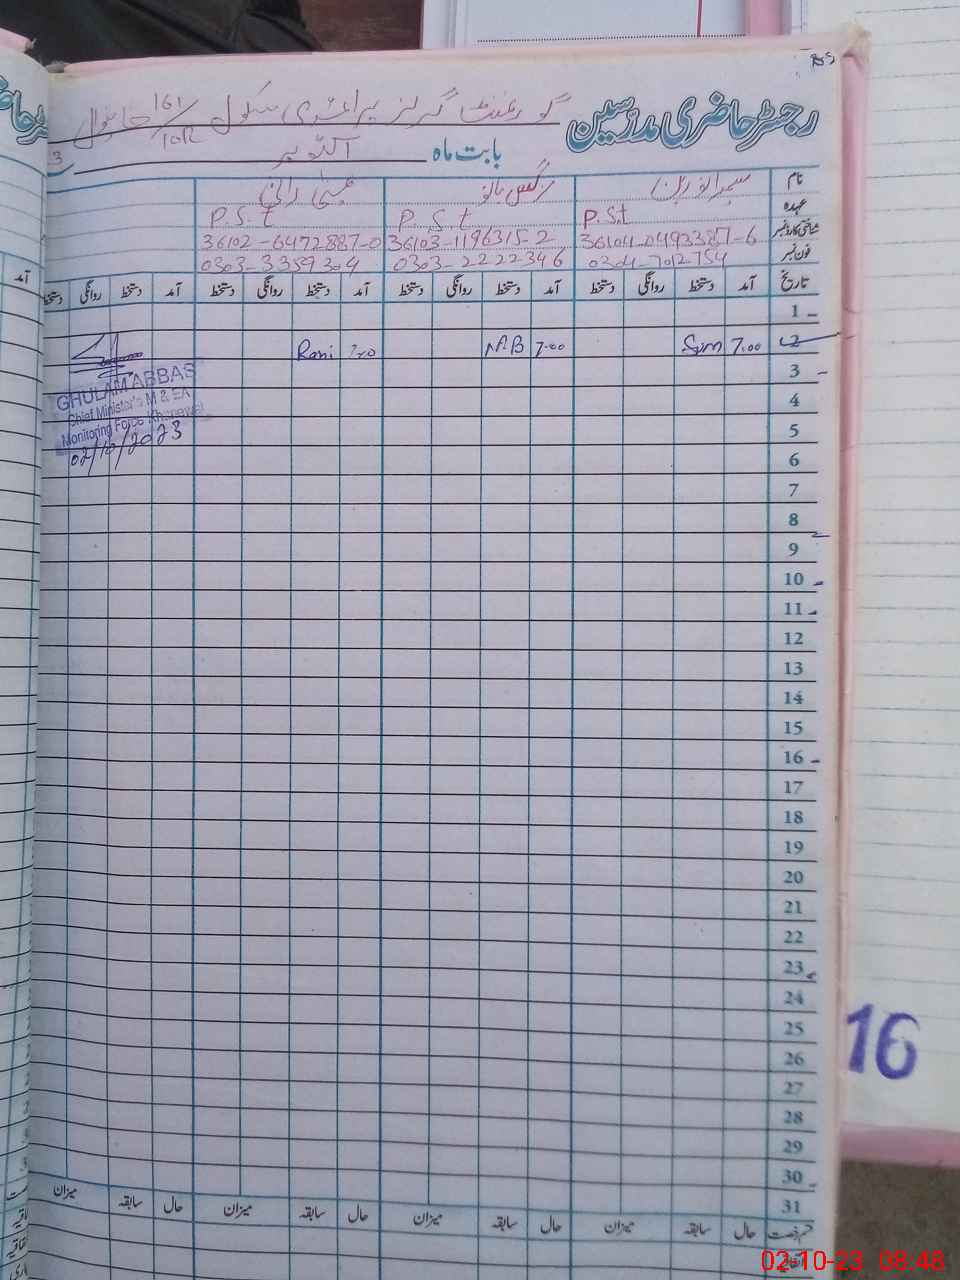 رجسٹر حاضری مدرسین گورنمنٹ گرلز پرائمری سکول 161/10R خانیوال
بابت ماہ اکتوبر
نام نرگس بانو رانی
عہدہ P.S.t P.S.t P.S.t
شناختی کارڈ نمبر 36104-0493387-6 36103-1196315-2 36102-6472887-0
فون نمبر 0304-7012754 0303-2222346 0303-3359304
تاریخ آمد دستخط روانگی دستخط آمد دستخط روانگی دستخط آمد دستخط روانگی دستخط آمد دستخط روانگی دستخط
1
2 7.00 Sum 7.00 N.B Rani
3
4
5
6
7
8
9
10
11
12
13
14
15
16
17
18
19
20
21
22
23
24
25
26
27
28
29
30
31
حال سابقہ میزان حال سابقہ میزان حال سابقہ میزان حال سابقہ میزان
GHULAM ABBAS
Chief Minister's M & EA
Monitoring Force Khanewal
02/10/2023
16
02-10-23 08:48